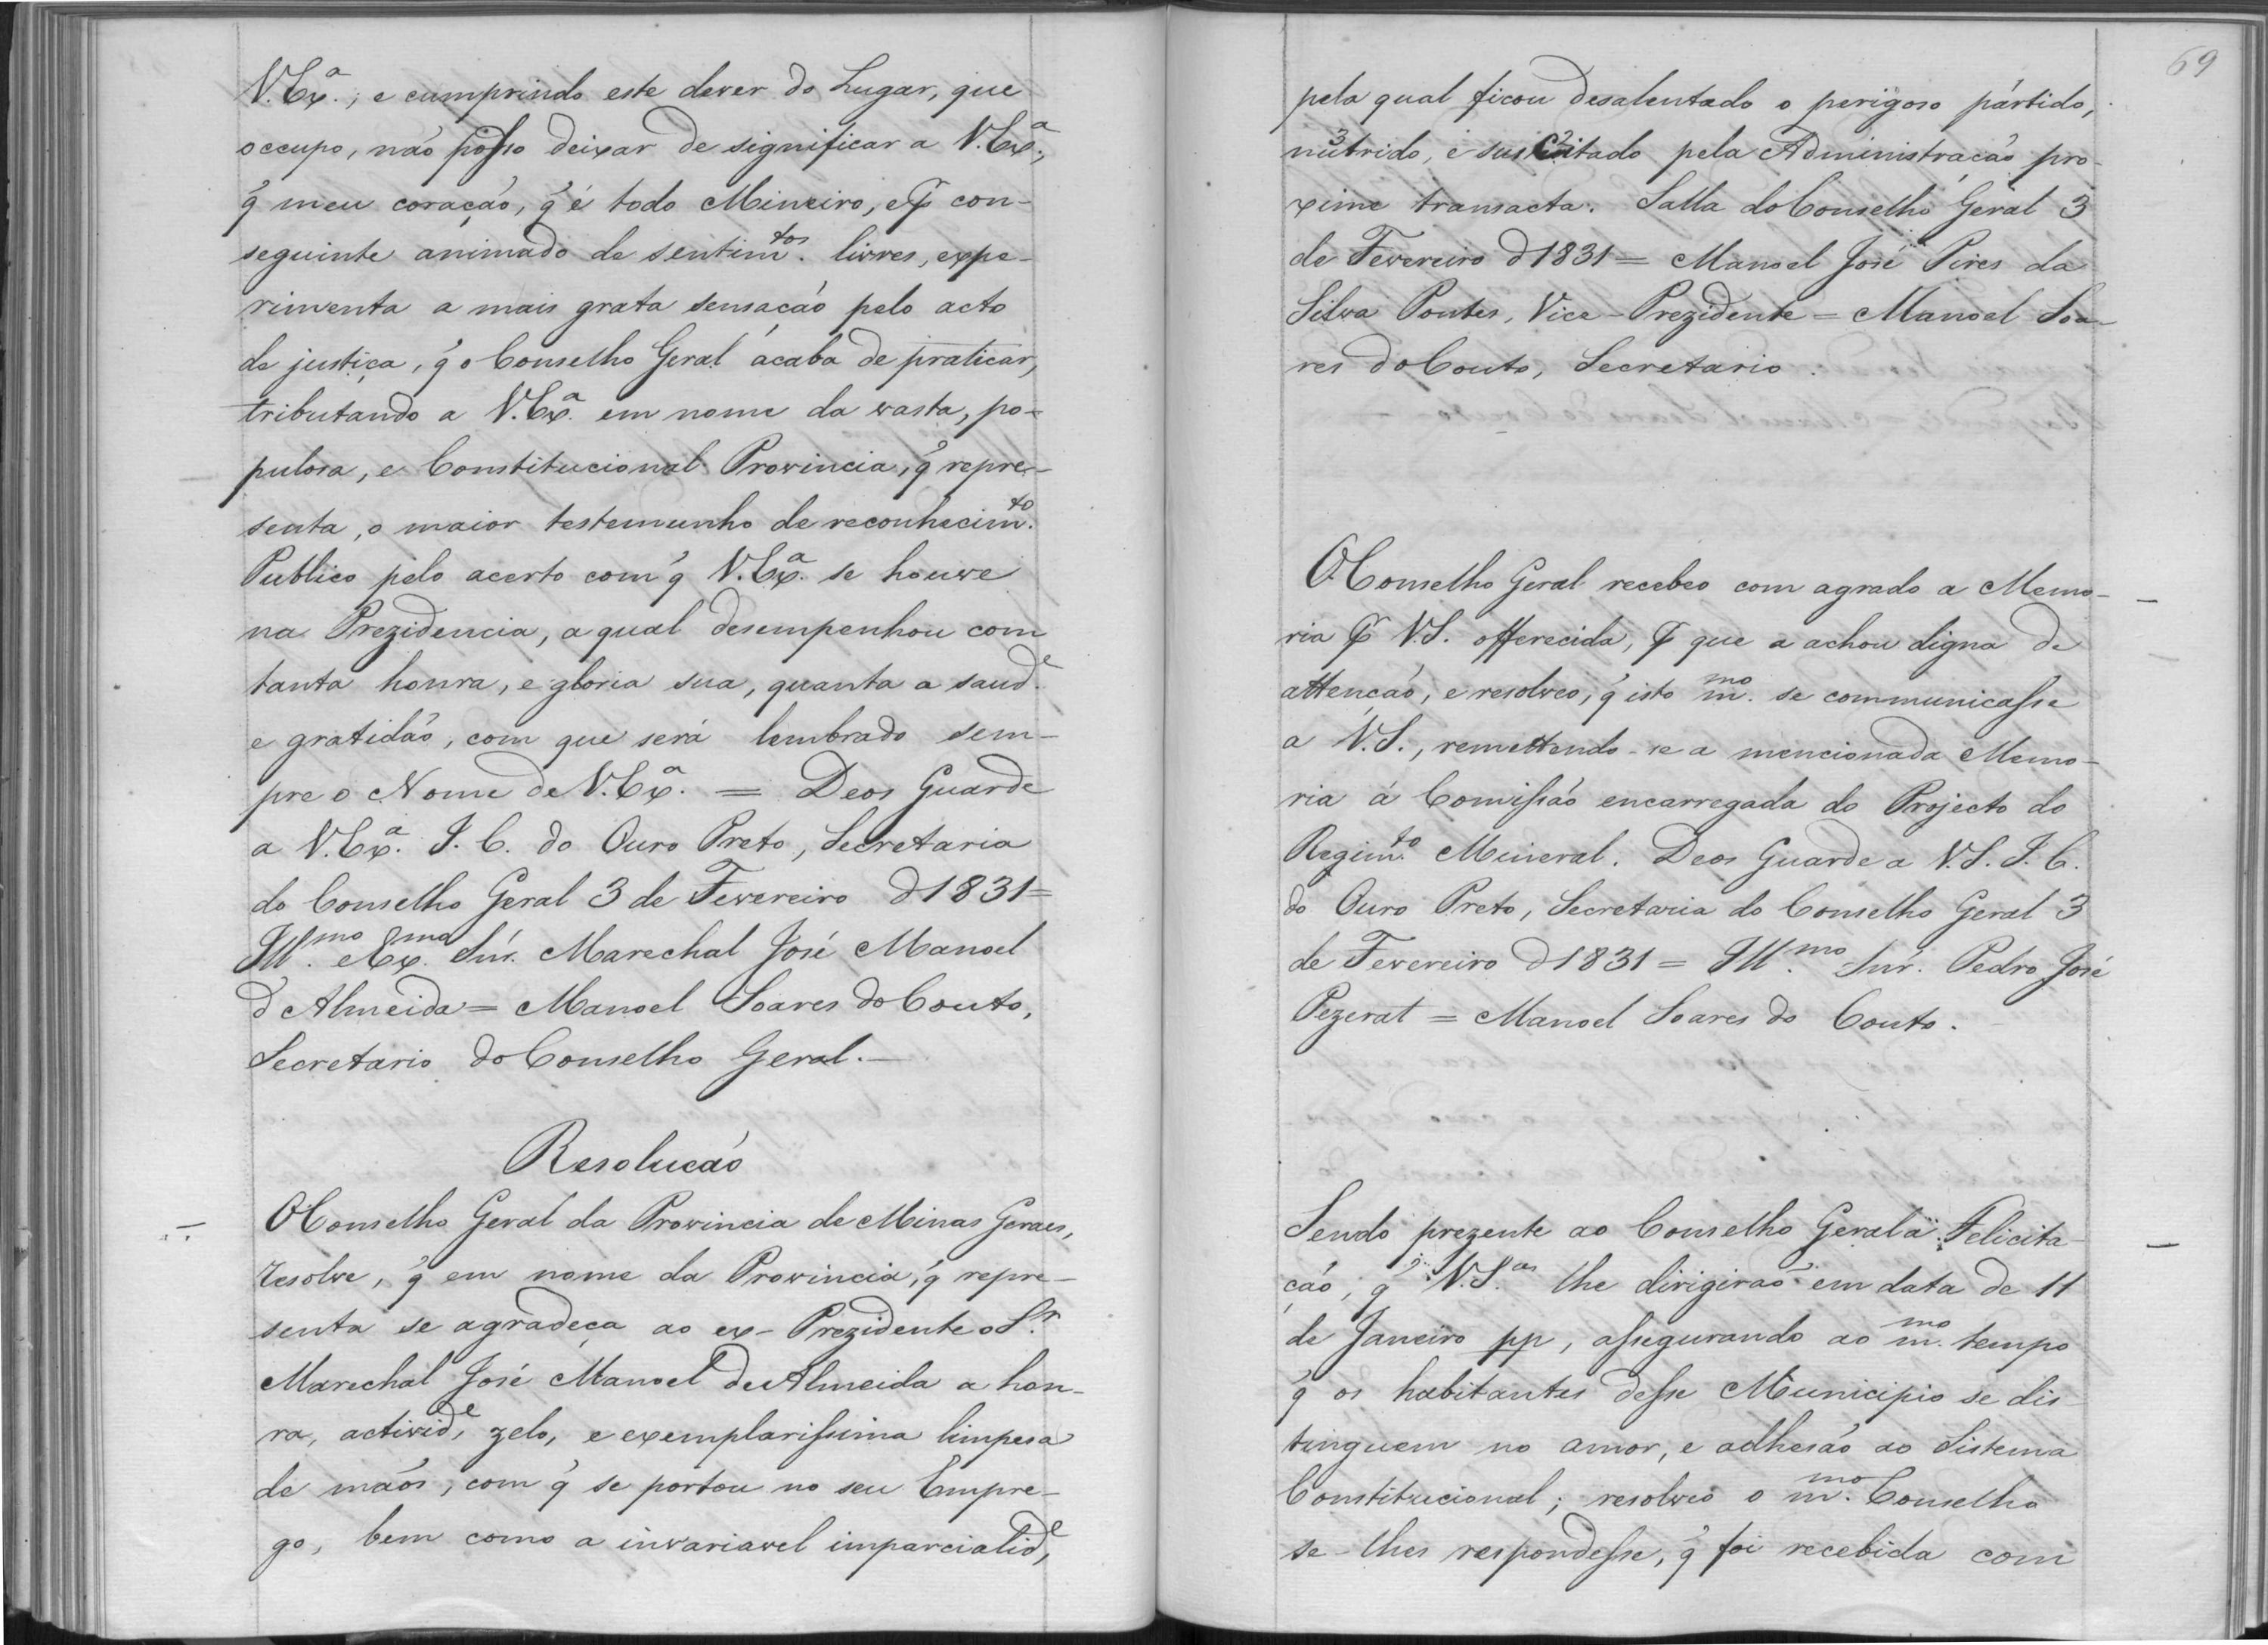 V. Ex.ª; e cumprindo este dever do Lugar, que
occupo, não posso deixar de significar a V. Ex.ª,
q̃ meu coração, q̃ é todo Mineiro, e p con-
seguinte animado de sentim.tos livres, expe-
rimenta a mais grata sensação pelo acto
de justiça, q̃ o Conselho Geral acaba de praticar,
tributando a V. Ex.ª em nome da vasta, po-
pulosa, e Constitucional Provincia, q̃ repre-
senta, o maior testemunho de reconhecim.to
Publico pelo acerto com q̃ V. Ex.ª se houve
na Prezidencia, a qual desempenhou com
tanta honra, e gloria sua, quanta a saud.e
e gratidão, com que será lembrado sem-
pre o Nome de V. Ex.ª = Deos Guarde
a V. Ex.ª I. C. do Ouro Preto, Secretaria
do Conselho Geral 3 de Fevereiro d 1831 =
Ill.mo e Ex.mo Snr. Marechal José Manoel
d'Almeida = Manoel Soares do Couto,
Secretario do Conselho Geral.—
Resolução
O Conselho Geral da Provincia de Minas Geraes,
resolve, q̃ em nome da Provincia, q̃ repre-
senta se agradeça ao ex-Prezidente o S.r
Marechal José Manoel de Almeida a hon-
ra, activid.e, zelo, e exemplarissima limpesa
de mãos, com q̃ se portou no seu Empre-
go, bem como a invariavel imparcialid.e,
69
pela qual ficou desalentado o perigoso pártido,
nutrido, e suscitado pela Administração pro-
xime transacta. Salla do Conselho Geral 3
de Fevereiro d 1831 = Manoel José Pires da
Silva Pontes, Vice-Prezidente = Manoel Soa-
res do Couto, Secretario.
O Conselho Geral recebeo com agrado a Memo-
ria p V. S. offerecida, p que a achou digna de
attenção, e resolveo, q̃ isto m.mo se communicasse
a V. S., remettendo-se a mencionada Memo-
ria á Comissão encarregada do Projecto do
Regim.to Mineral. Deos Guarde a V. S. I. C.
do Ouro Preto, Secretaria do Conselho Geral 3
de Fevereiro d 1831 = Ill.mo Snr. Pedro José
Pezerat = Manoel Soares do Couto.
Sendo prezente ao Conselho Geral a Felicita-
ção, q̃ V. S.as lhe dirigirão em data de 11
de Janeiro pp, assegurando ao m.mo tempo
q̃ os habitantes desse Municipio se dis-
tinguem no amor, e adhesão ao Sistema
Constitucional; resolveo o m.mo Conselho
se-lhes respondesse, q̃ foi recebida com